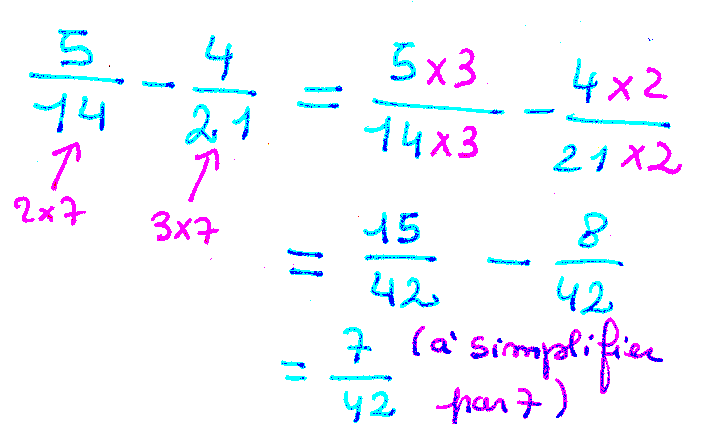 5/14 - 4/21 = 5×3/14×3 - 4×2/21×2
2×7 3×7
= 15/42 - 8/42
= 7/42 (à simplifier
par 7)